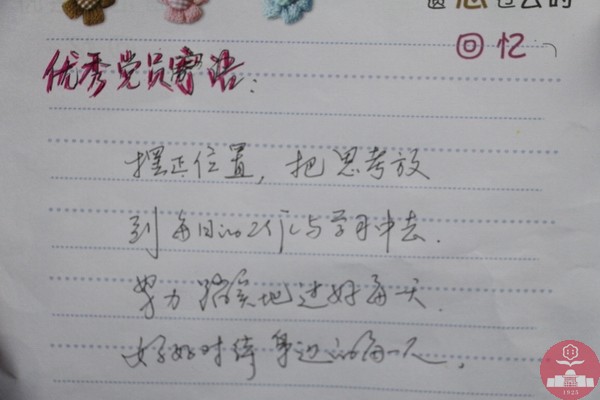 回忆
优秀党员寄语:
摆正位置，把思考放
到每日的工作与学习中去.
努力踏实地过好每一天.
好好对待身边的每一人.
1925